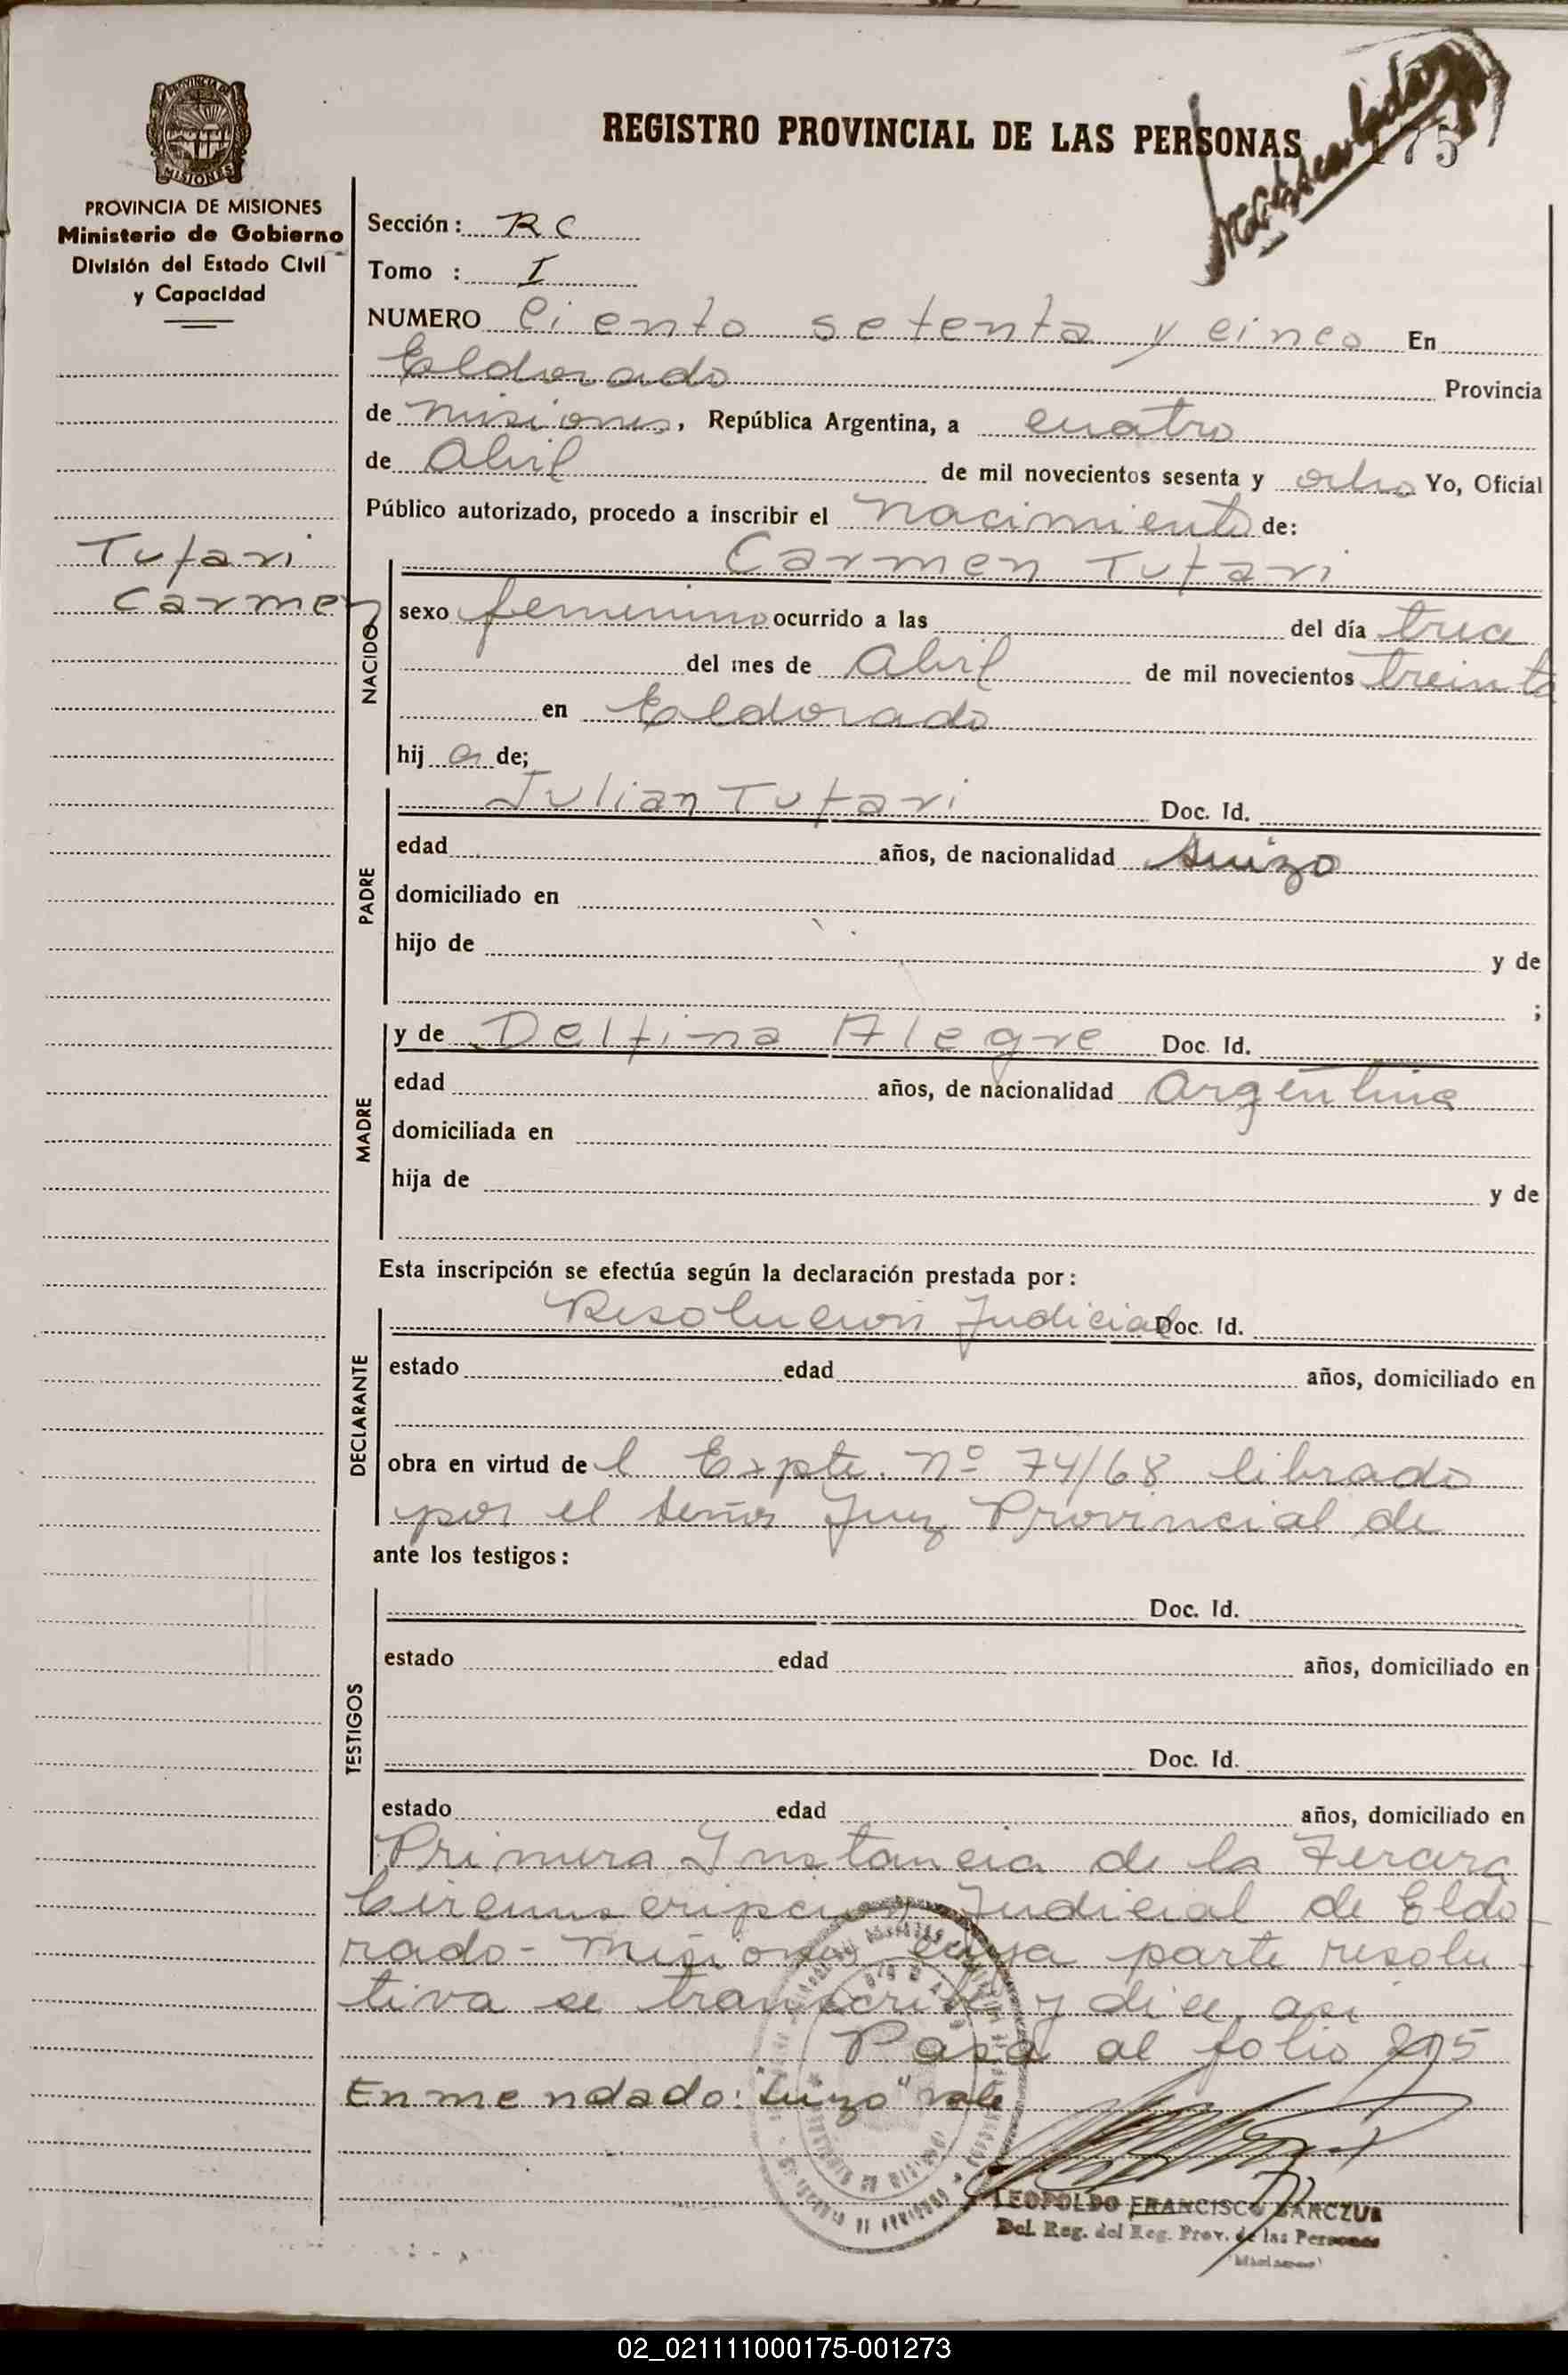 REGISTRO PROVINCIAL DE LAS PERSONAS
175
PROVINCIA DE MISIONES
Ministerio de Gobierno
División del Estado Civil
y Capacidad
Sección: R C
Tomo : I
NUMERO Ciento setenta y cinco En
Eldorado Provincia
de Misiones, República Argentina, a cuatro
de Abril de mil novecientos sesenta y ocho Yo, Oficial
Público autorizado, procedo a inscribir el nacimiento de:
Tutari
Carmen
NACIDO
Carmen Tutari
sexo femenino ocurrido a las del día trece
del mes de Abril de mil novecientos treinta
en Eldorado
hij a de;
PADRE
Julian Tutari Doc. Id.
edad años, de nacionalidad suizo
domiciliado en
hijo de y de
;
MADRE
y de Delfina Alegre Doc. Id.
edad años, de nacionalidad argentina
domiciliada en
hija de y de
Esta inscripción se efectúa según la declaración prestada por:
DECLARANTE
Resolucion Judicial Doc. Id.
estado edad años, domiciliado en
obra en virtud de l Expte. Nº 74/68 librado
por el señor Juez Provincial de
ante los testigos:
TESTIGOS
Doc. Id.
estado edad años, domiciliado en
Doc. Id.
estado edad años, domiciliado en
Primera Instancia de la Tercera
Circunscripcion Judicial de Eldo-
rado - Misiones cuya parte resolu-
tiva se transcribe y dice asi
Pasa al folio
Enmendado: "suizo" vale
LEOPOLDO FRANCISCO
Del. Reg. del Reg. Prov. de las Personas
02_021111000175-001273